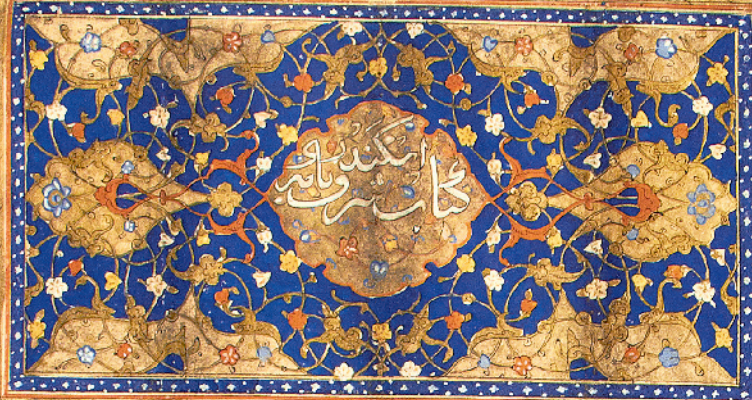 كتاب شرفنامه
اسكندرى